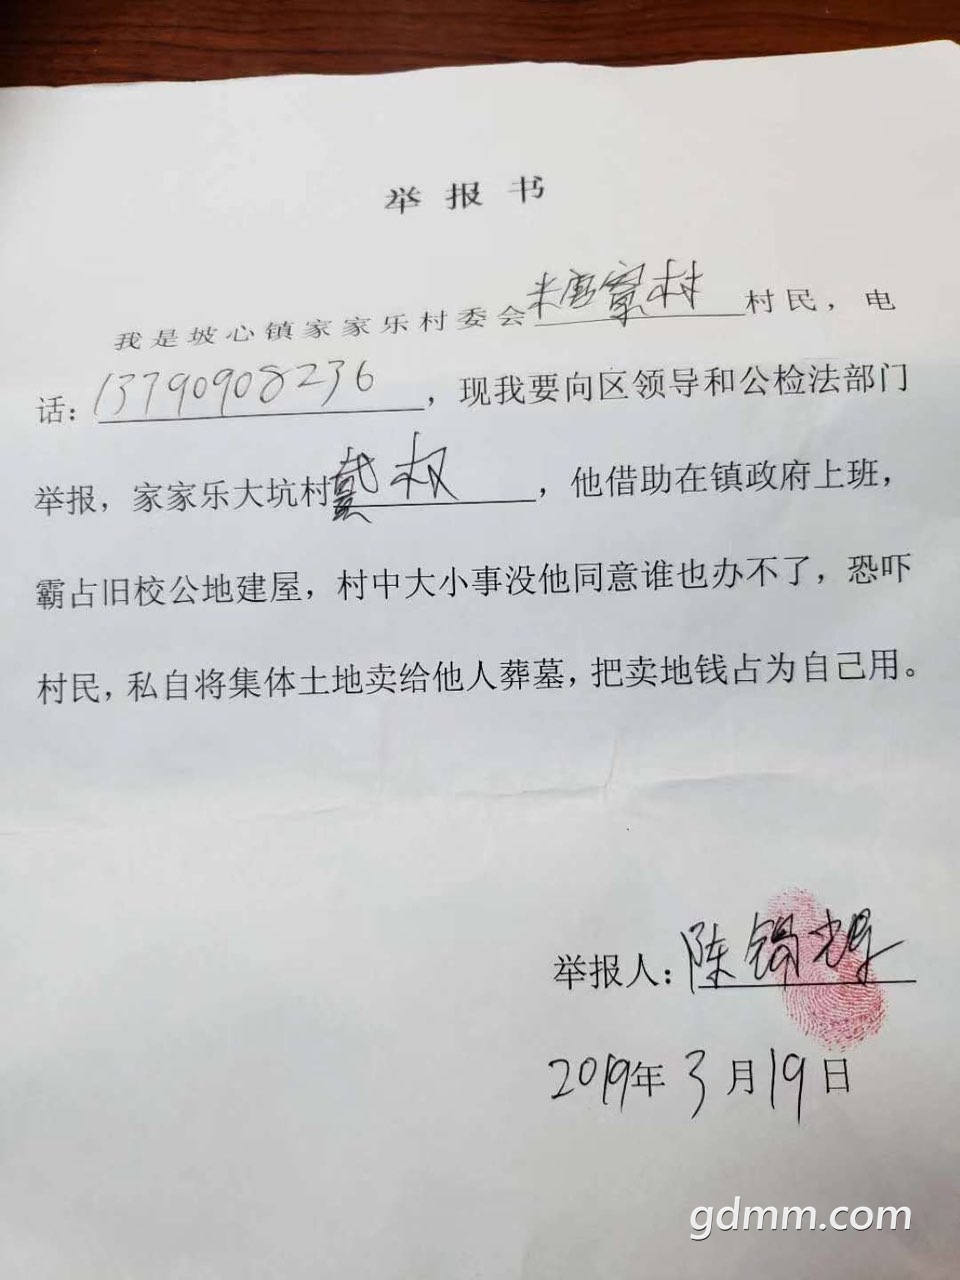 举报书
我是坡心镇家家乐村委会糖寮村村民，电
话：13790908236，现我要向区领导和公检法部门
举报，家家乐大坑村戴权，他借助在镇政府上班，
霸占旧校公地建屋，村中大小事没他同意谁也办不了，恐吓
村民，私自将集体土地卖给他人葬墓，把卖地钱占为自己用。
举报人：陈锡辉
2019年3月19日
gdmm.com